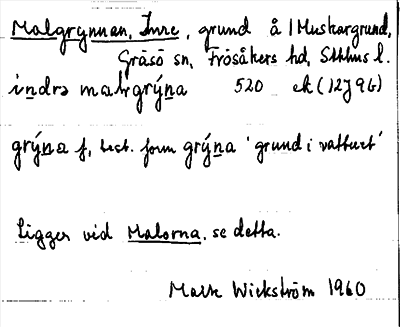 Malgrynnan, Inre, grund å I Muskargrund,
Gräsö sn, Frösåkers hd, Sthlms l.
ìndrə malgrýn̲a 520 ek (12J9G)
grýn̲a f, best. form grýn̲a 'grund i vattnet'
Ligger vid Malorna, se detta.
Mats Wickström 1960